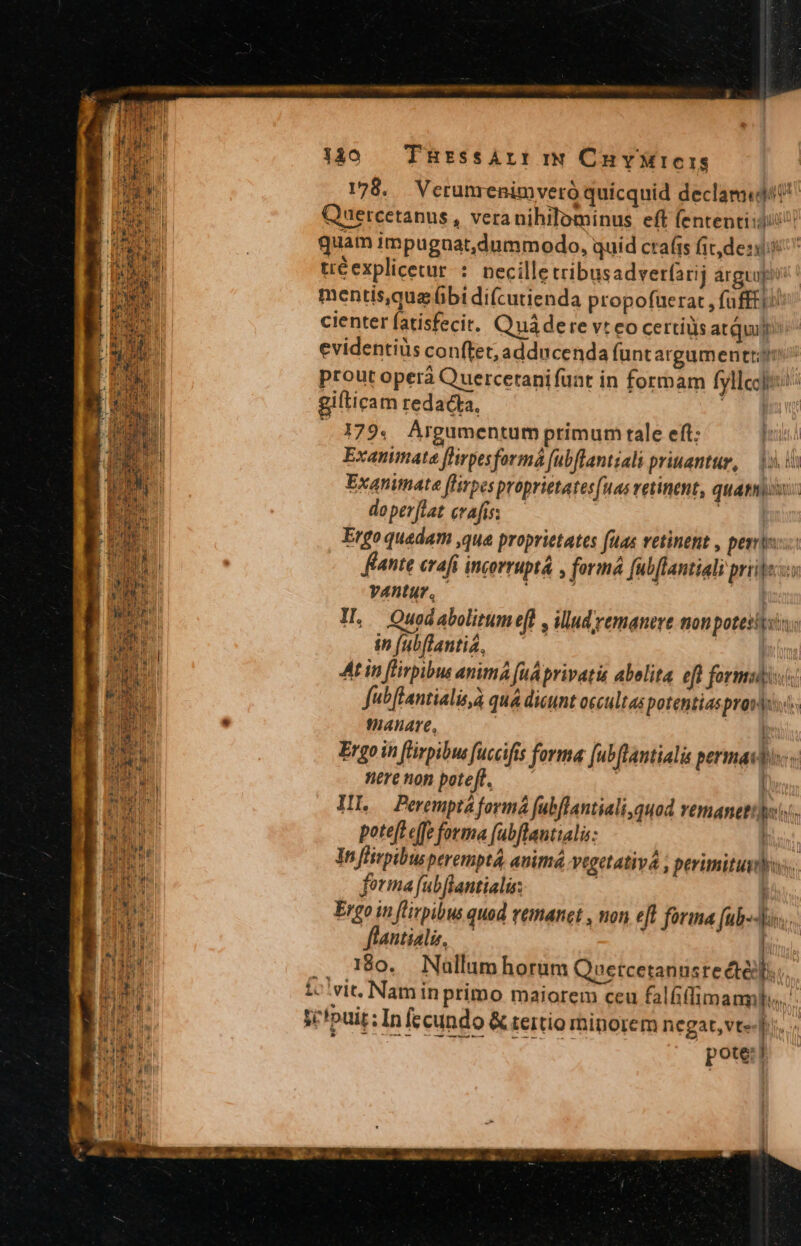 180 THESSALI IN CHYMICIS
178. Verum enimverò quicquid
Quercetanus, vera nihilominus est
quam impugnat, dummodo, quid crasis sit,
explicetur : nec ille tribus adversarij
mentis, quæ sibi discutienda proposuerat,
cienter satisfecit. Quâ de re vt eo certiùs
evidentiùs constet, adducenda sunt
prout operâ Quercetani sunt in formam
gisticam redacta.
179. Argumentum primum tale est:
Exanimatæ stirpes formâ substantiali priuantur,
Exanimatæ stirpes proprietates suas retinent,
do perstat crasis:
Ergo quædam, quæ proprietates suas retinent,
stante crasi incorruptâ, formâ substantiali
vantur.
II. Quod abolitum est, illud remanere non
in substantiâ.
At in stirpibus animâ suâ privatis abolita est
substantialis, à quâ dicunt occultas potentias
manare,
Ergo in stirpibus succisis forma substantialis
nere non potest.
III. Peremptâ formâ substantiali, quod
potest esse forma substantialis:
In stirpibus peremptâ animâ vegetativâ,
forma substantialis:
Ergo in stirpibus quod remanet, non est forma sub-
stantialis.
180. Nullum horum Quercetanus
vit. Nam in primo maiorem ceu
puit: In secundo & tertio minorem negat,